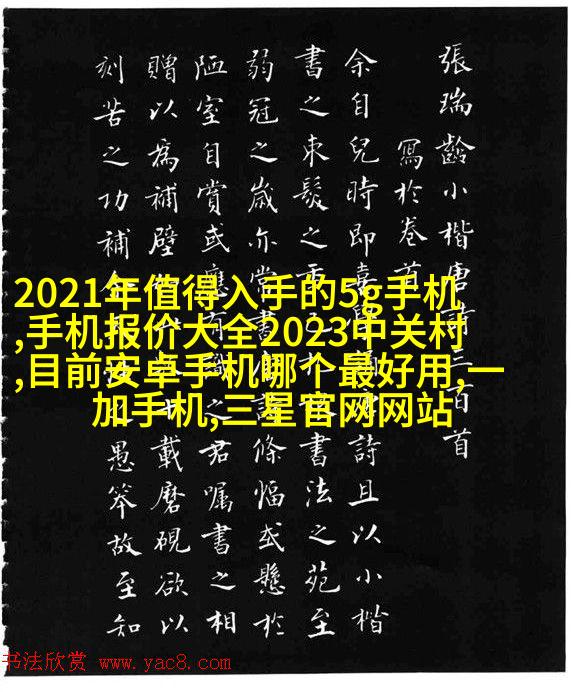 張瑞齡小楷唐詩三百首
寫於卷首
余自兒時即喜詩且以小楷
書之束髮之書法之苑至
弱冠之歲亦嘗書條幅或懸於
陋室自賞或應有識之君嘱書之相
贈以為補壁載磨硯欲以
刻苦之功補愚笨故至知
2021年值得入手的5g手机
,手机报价大全2023中关村
,目前安卓手机哪个最好用,一
加手机,三星官网网站
书法欣赏 www.yac8.com